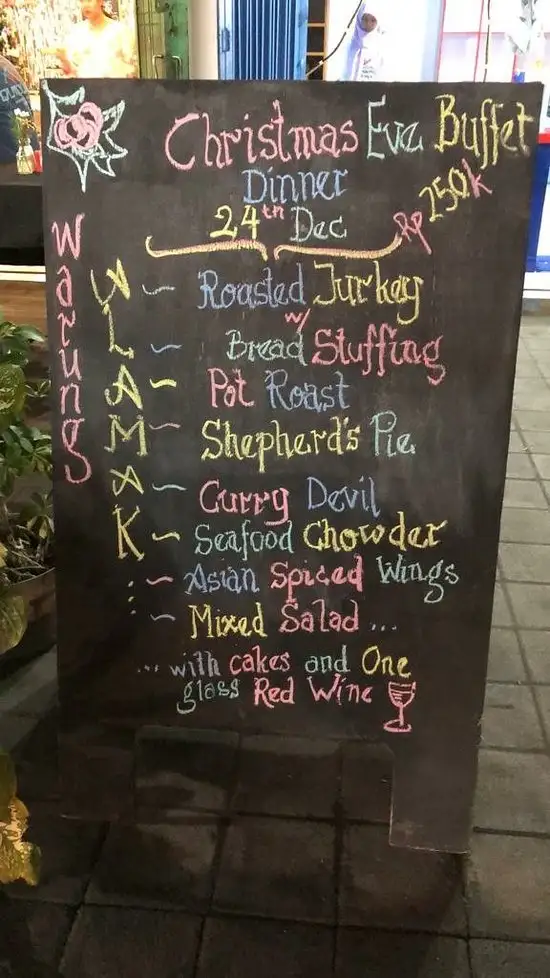 Christmas Eve Buffet
Dinner
24th Dec
Rp 250k
Warung
ALAMAK
~ Roasted Turkey
w/
~ Bread Stuffing
~ Pot Roast
~ Shepherd's Pie
~ Curry Devil
~ Seafood Chowder
~ Asian Spiced Wings
~ Mixed Salad ...
... with cakes and One
glass Red Wine